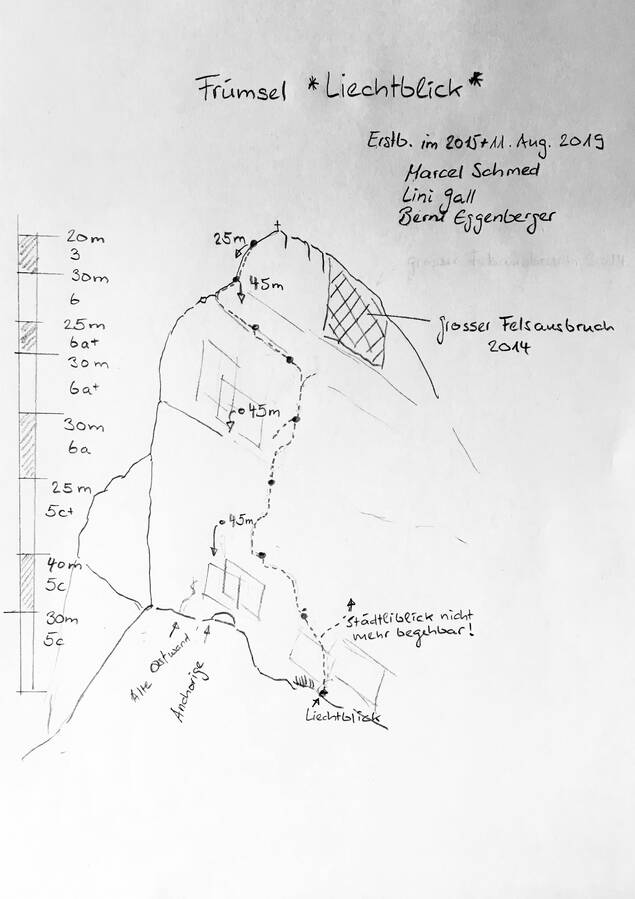 Frümsel *Liechtblick*
Erstb. im 2015+11. Aug. 2019
Marcel Schmed
Lini Gall
Berni Eggenberger
20m
3
30m
6
25m
6a+
30m
6a+
30m
6a
25m
5c+
40m
5c
30m
5c
25m
45m
grosser Felsausbruch 2014
grosser Felsausbruch
2014
45m
45m
Städtliblick nicht
mehr begehbar!
Alte Ostwand
Anchorige
Liechtblick